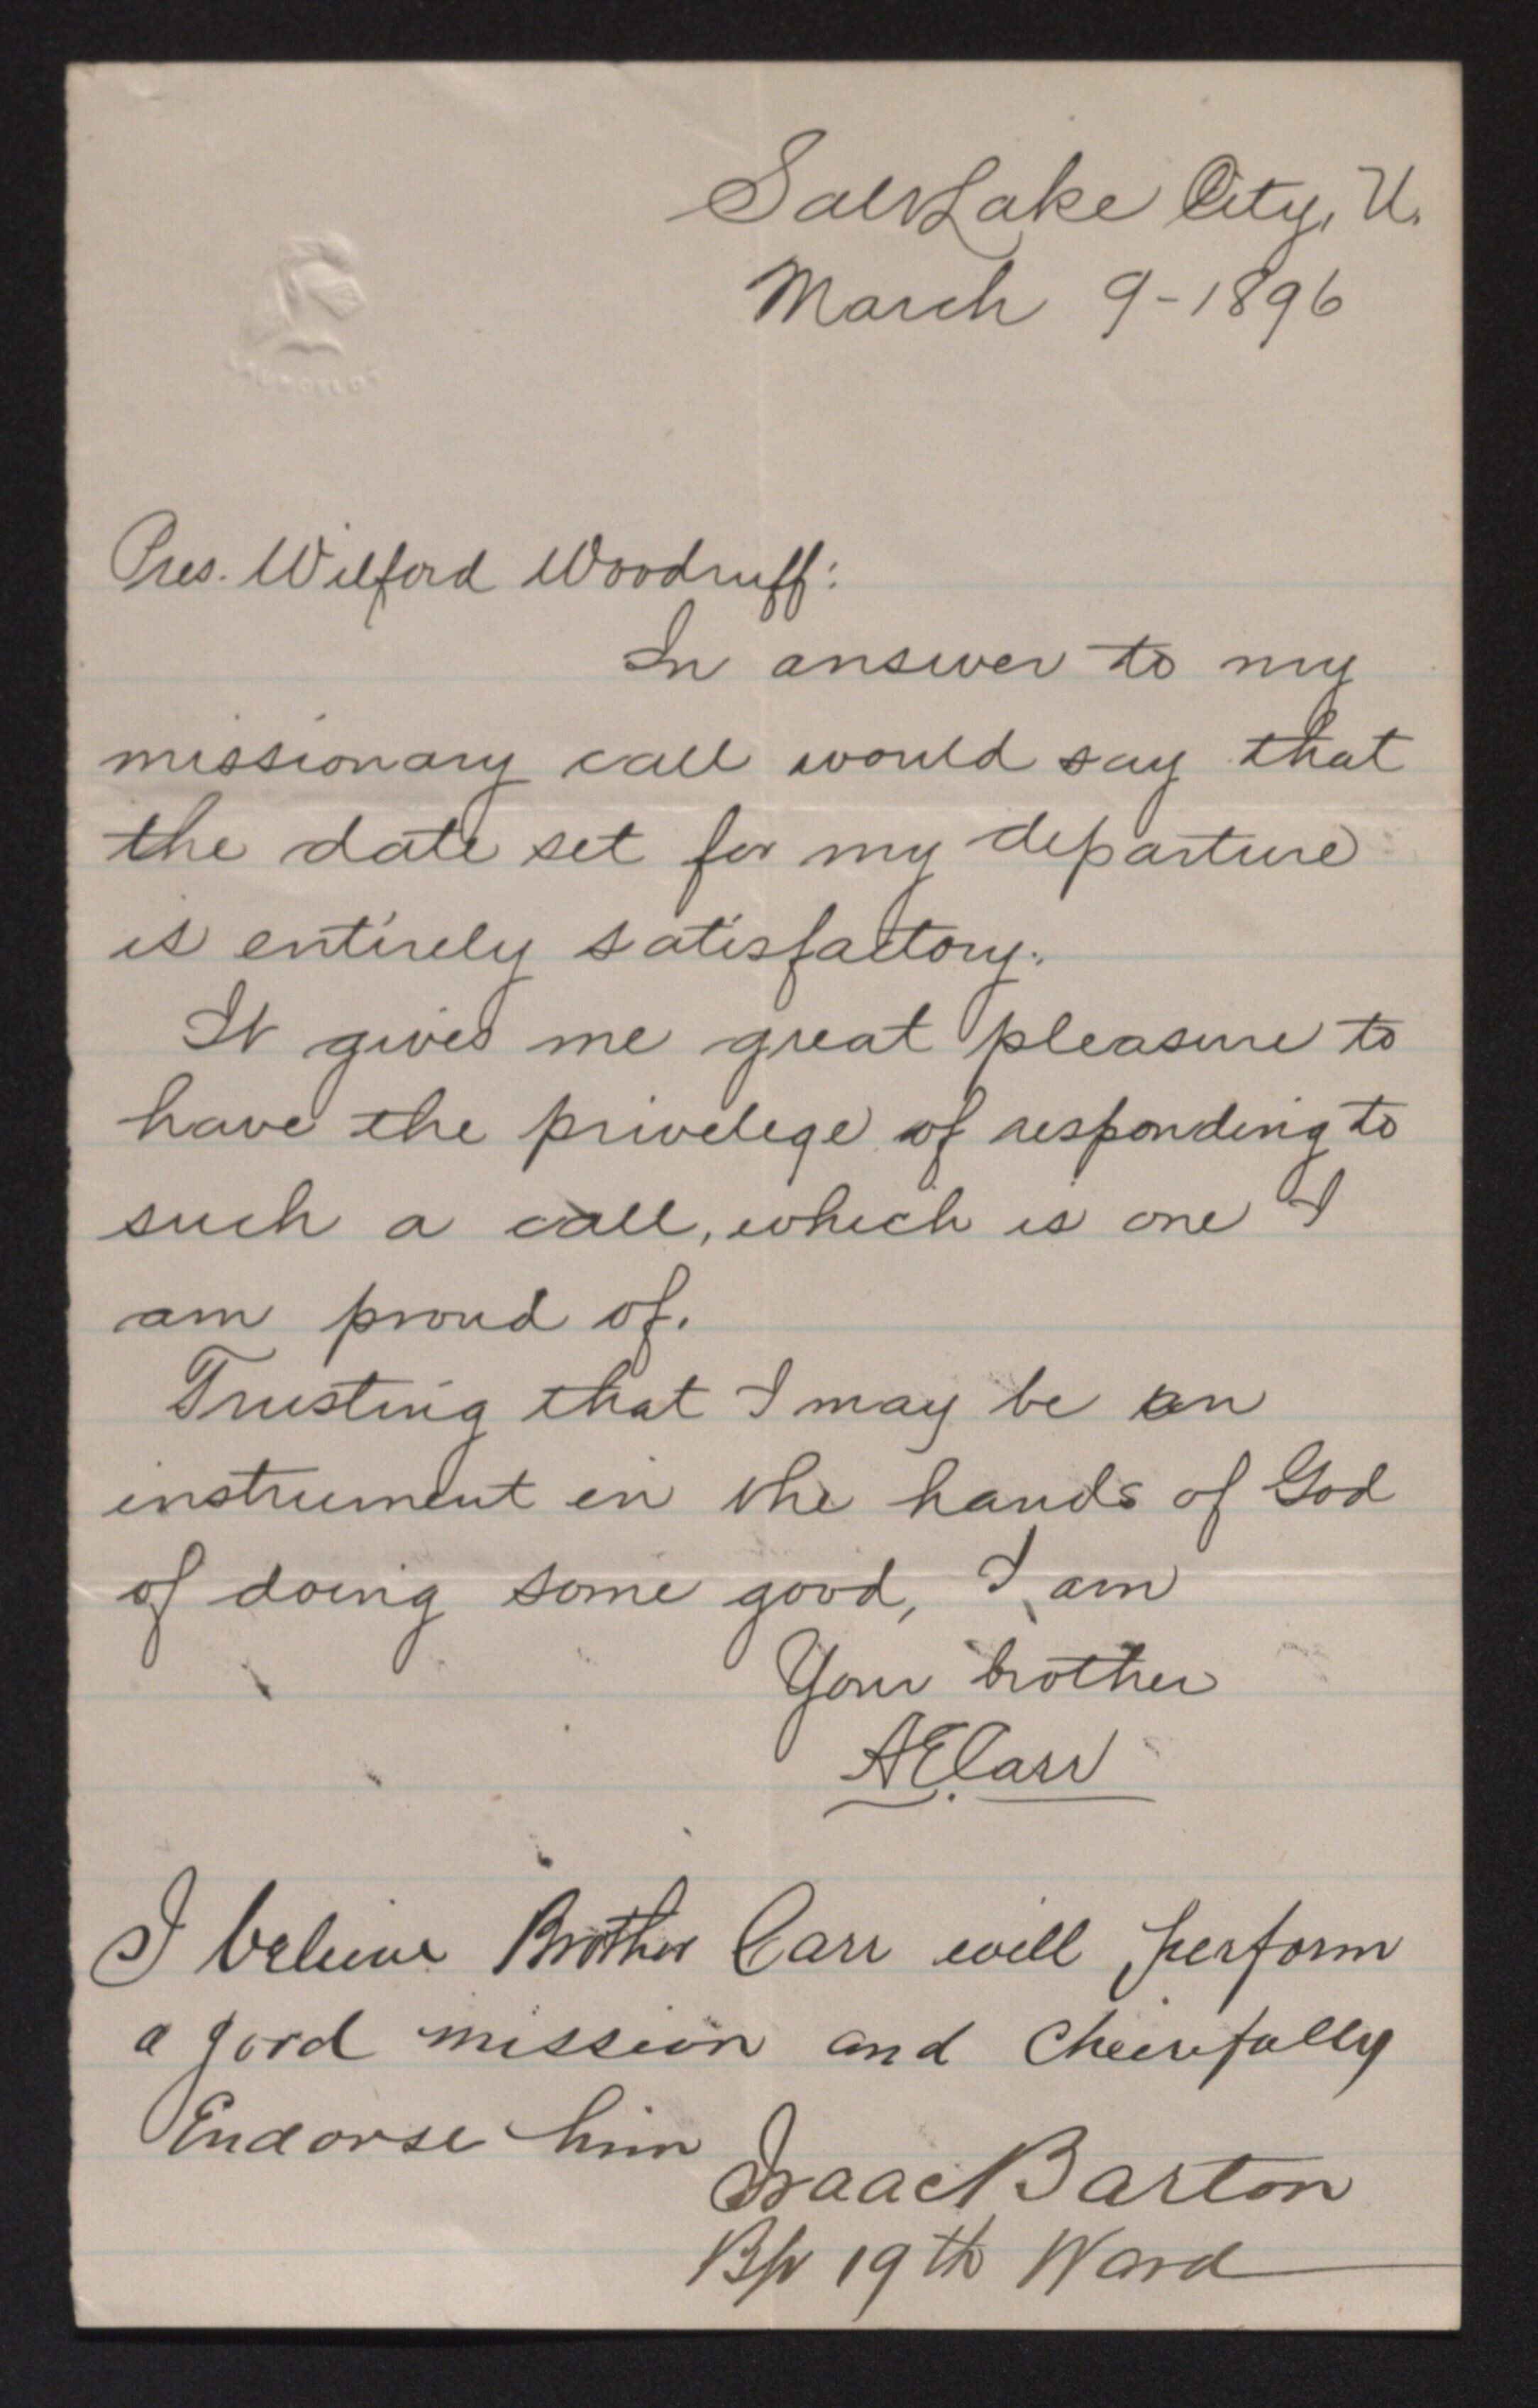 Salt Lake City, U.
March 9-1896
Pres. Wilford Woodruff:
In answer to my
missionary call would say that
the date set for my departure
is entirely satisfactory.
It gives me great pleasure to
have the privelege of responding to
such a call, which is one I
am proud of.
Trusting that I may be an
instrument in the hands of God
of doing some good, I am
Your brother
A.E. Carr
I believe Brother Carr will perform
a good mission and cheerfully
Endorse him
Isaac Barton
Bp 19th Ward